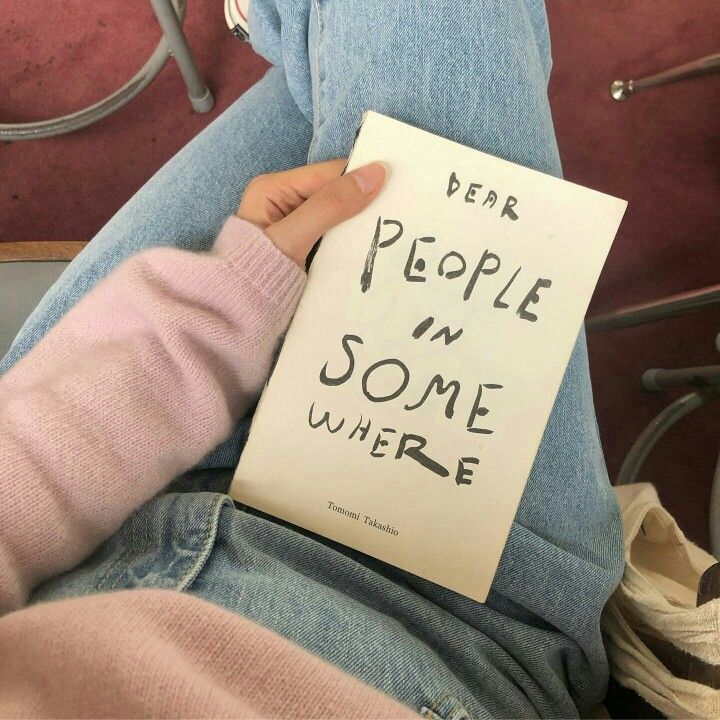 DEAR
PEOPLE
IN
SOME
WHERE
Tomomi Takashio